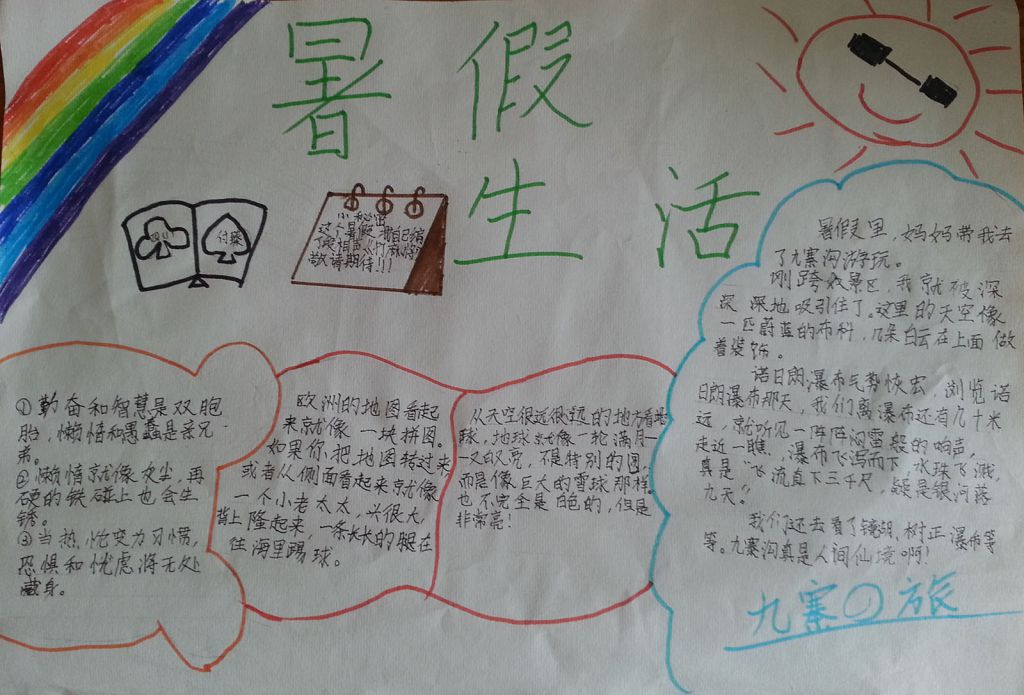 暑假
生活
小秘密
这个暑假,我自己编
敬请期待!!!
付燊
①勤奋和智慧是双胞
胎,懒惰和愚蠢是亲兄
弟。
②懒惰就像灰尘,再
硬的铁碰上也会生
锈。
③当热忱变力习惯,
恐惧和忧虑海无处
藏身。
欧洲的地图看起
来就像一块拼图。
如果你把地图转过来,
或者从侧面看起来就像
一个小老太太,兴很大,
背上隆起来,一条长长的腿在
往海里踢球。
从天空很远很远的地方看地
球,地球就像一轮满月一
又白又亮,不是特别的圆,
而是像巨大的雪球那样。
也不完全是白色的,但是
非常亮!
暑假里,妈妈带我去
了九寨沟游玩。
刚跨效景区,我就被深
深深地吸引住了。这里的天空像
一匹蔚蓝的布料,几朵白云在上面做
着装饰。
诺日朗瀑布气势恢宏,浏览诺
日朗瀑布那天,我们离瀑布还有几十米
远,就听见一阵阵闷雷般的响声,
走近一瞧,瀑布飞泻而下,水珠飞溅,
真是"飞流直下三千尺,疑是银河落
九天"。
我们还去看了镜湖、树正瀑布等
等。九寨沟真是人间仙境啊!
九寨の旅